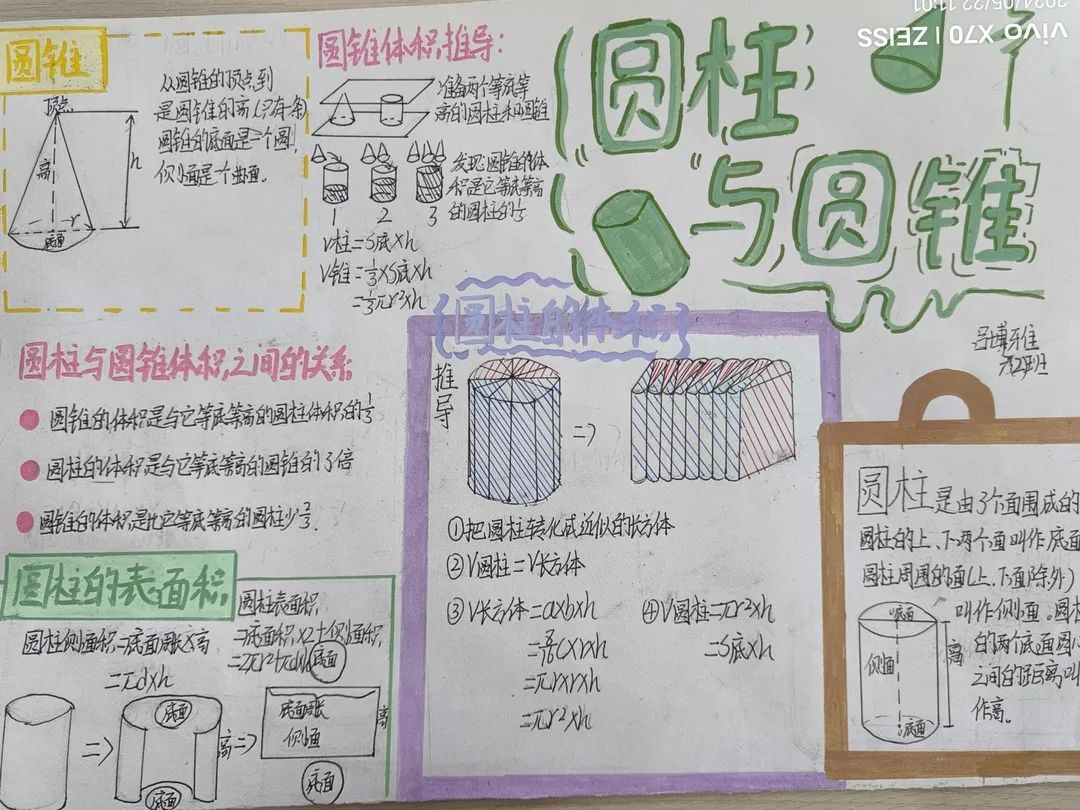 圆柱
与圆锥
圆锥
顶点
高
h
r
底面
从圆锥的顶点到
是圆锥的高(只有一条
圆锥的底面是一个圆,
侧面是个曲面。
圆锥体积推导:
准备两个等底等
高的圆柱和圆锥
1 2 3
发现:圆锥的体
积是它等底等高
的圆柱的1/3
V柱=S底×h
V锥=1/3×S底×h
=1/3πr²×h
圆柱与圆锥体积之间的关系
圆锥的体积是与它等底等高的圆柱体积的1/3
圆柱的体积是与它等底等高的圆锥的3倍
圆锥的体积是比它等底等高的圆柱少2/3.
圆柱的表面积
圆柱侧面积=底面周长×高
=πd×h
圆柱表面积
=底面积×2+侧面积
=2πr²+πdh
底面
底面
高
底面周长
侧面
高
底面
底面
圆柱的体积
推导
①把圆柱转化成近似的长方体
②V圆柱=V长方体
③V长方体=a×b×h
×r×h
=πr×r×h
=πr²×h
④V圆柱=πr²×h
=S底×h
圆柱是由3个面围成的
圆柱的上、下两个面叫作底面
圆柱周围的面(上、下面除外)
叫作侧面。圆柱
的两个底面圆心
之间的距离叫
作高。
底面
侧面
高
底面
vivo X70 | ZEISS
2024/05/22 11:01